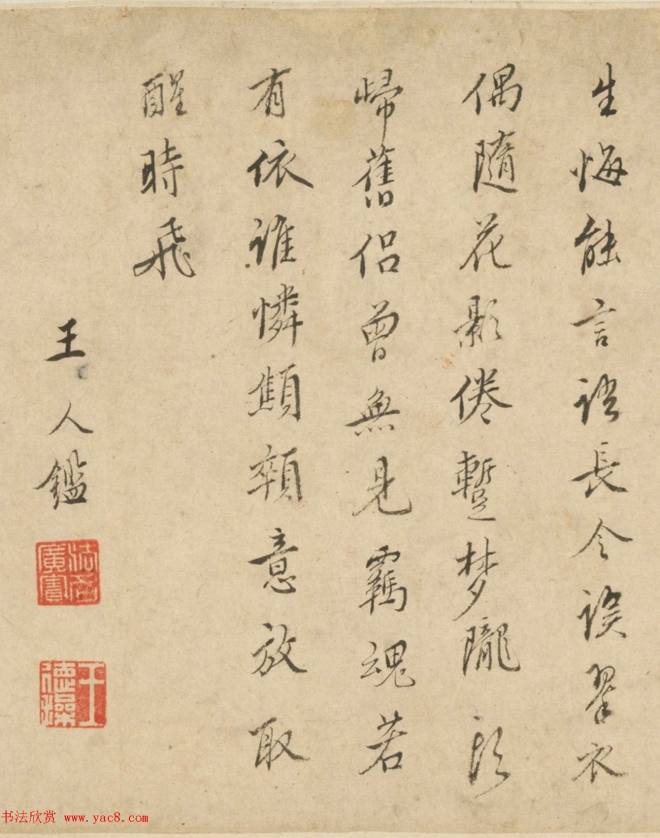 生悔能言語長令誤翠衣
偶隨花影倦蹔梦隴頭
歸舊侣曾無見羈魂若
有依誰憐顦顇意放取
醒時飛
王人鑑
王德操
书法欣赏 www.yac8.com